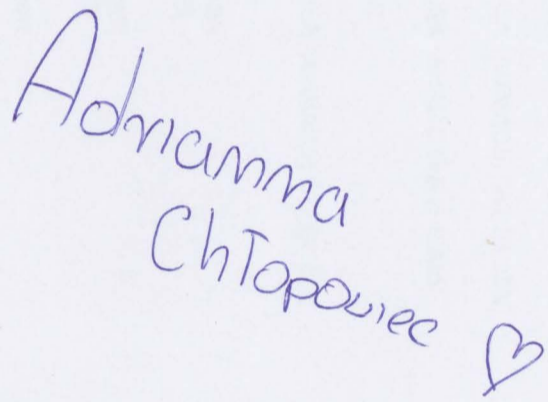 Adrianna
Chłopowiec ♡